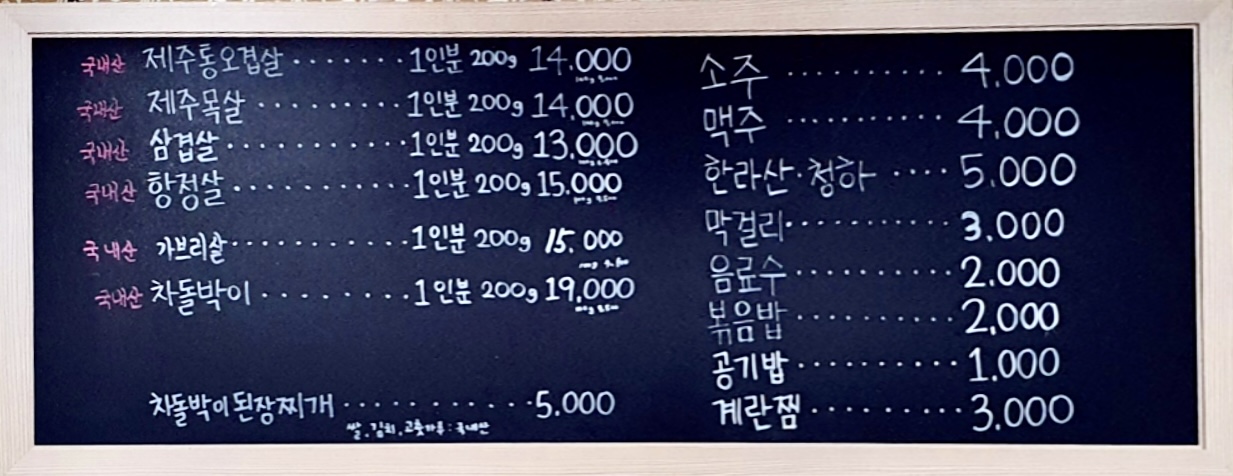 국내산 제주통오겹살 · · · · · · · 1인분 200g 14.000
국내산 제주목살 · · · · · · · · · · 1인분 200g 14.000
국내산 삼겹살 · · · · · · · · · · · 1인분 200g 13.000
국내산 항정살 · · · · · · · · · · · 1인분 200g 15.000
국내산 가브리살 · · · · · · · · · · 1인분 200g 15.000
국내산 차돌박이 · · · · · · · · 1인분 200g 19.000
차돌박이된장찌개 · · · · · · · · · · · · 5.000
쌀, 김치, 고춧가루 : 국내산
소주 · · · · · · · · · · 4.000
맥주 · · · · · · · · · · 4.000
한라산·청하 · · · · 5.000
막걸리 · · · · · · · · · · 3.000
음료수 · · · · · · · · · · 2.000
볶음밥 · · · · · · · · · · 2.000
공기밥 · · · · · · · · · · 1.000
계란찜 · · · · · · · · · 3.000